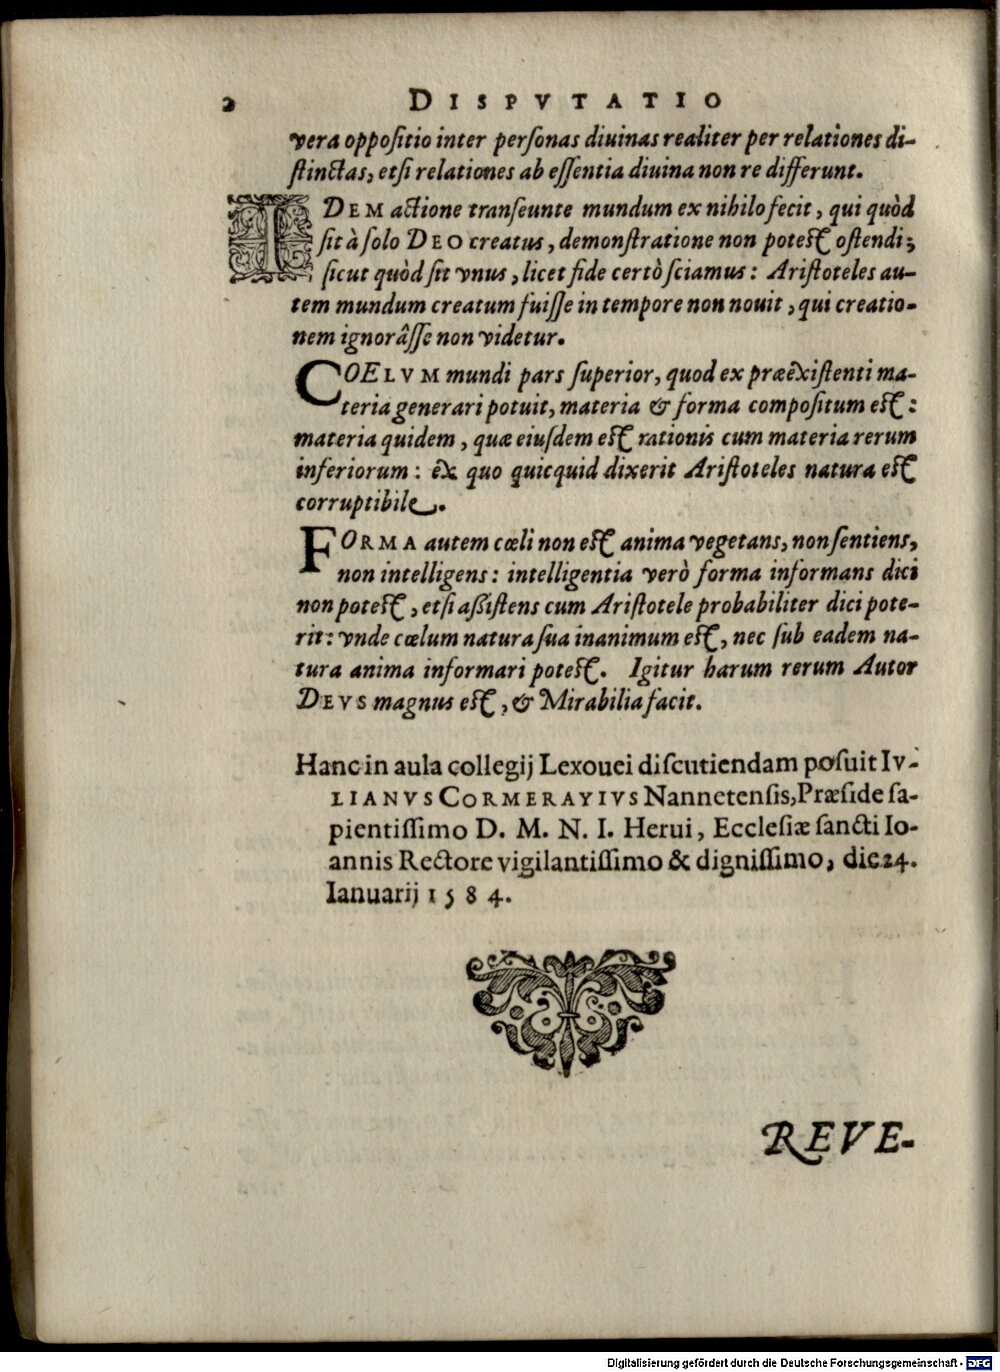 2 DISPVTATIO
vera oppoſitio inter perſonas diuinas realiter per relationes di-
ſtinctas, etſi relationes ab eſſentia diuina non re differunt.
IDEM actione tranſeunte mundum ex nihilo fecit, qui quòd
ſit à ſolo DEO creatus, demonſtratione non poteſt oſtendi;
ſicut quòd ſit vnus, licet fide certò ſciamus: Ariſtoteles au-
tem mundum creatum fuiſſe in tempore non nouit, qui creatio-
nem ignorâſſe non videtur.
COELVM mundi pars ſuperior, quod ex præêxiſtenti ma-
teria generari potuit, materia & forma compoſitum eſt:
materia quidem, quæ eiuſdem eſt rationis cum materia rerum
inferiorum: êx quo quicquid dixerit Ariſtoteles natura eſt
corruptibile.
FORMA autem cœli non eſt anima vegetans, non ſentiens,
non intelligens: intelligentia verò forma informans dici
non poteſt, etſi aßiſtens cum Ariſtotele probabiliter dici pote-
rit: vnde cœlum natura ſua inanimum eſt, nec ſub eadem na-
tura anima informari poteſt. Igitur harum rerum Autor
DEVS magnus eſt, & Mirabilia facit.
Hanc in aula collegij Lexouei diſcutiendam poſuit IV-
LIANVS CORMERAYIVS Nannetenſis, Præſide ſa-
pientiſſimo D. M. N. I. Herui, Eccleſiæ ſancti Io-
annis Rectore vigilantiſſimo & digniſſimo, die 24.
Ianuarij 1584.
REVE-
Digitalisierung gefördert durch die Deutsche Forschungsgemeinschaft - DFG